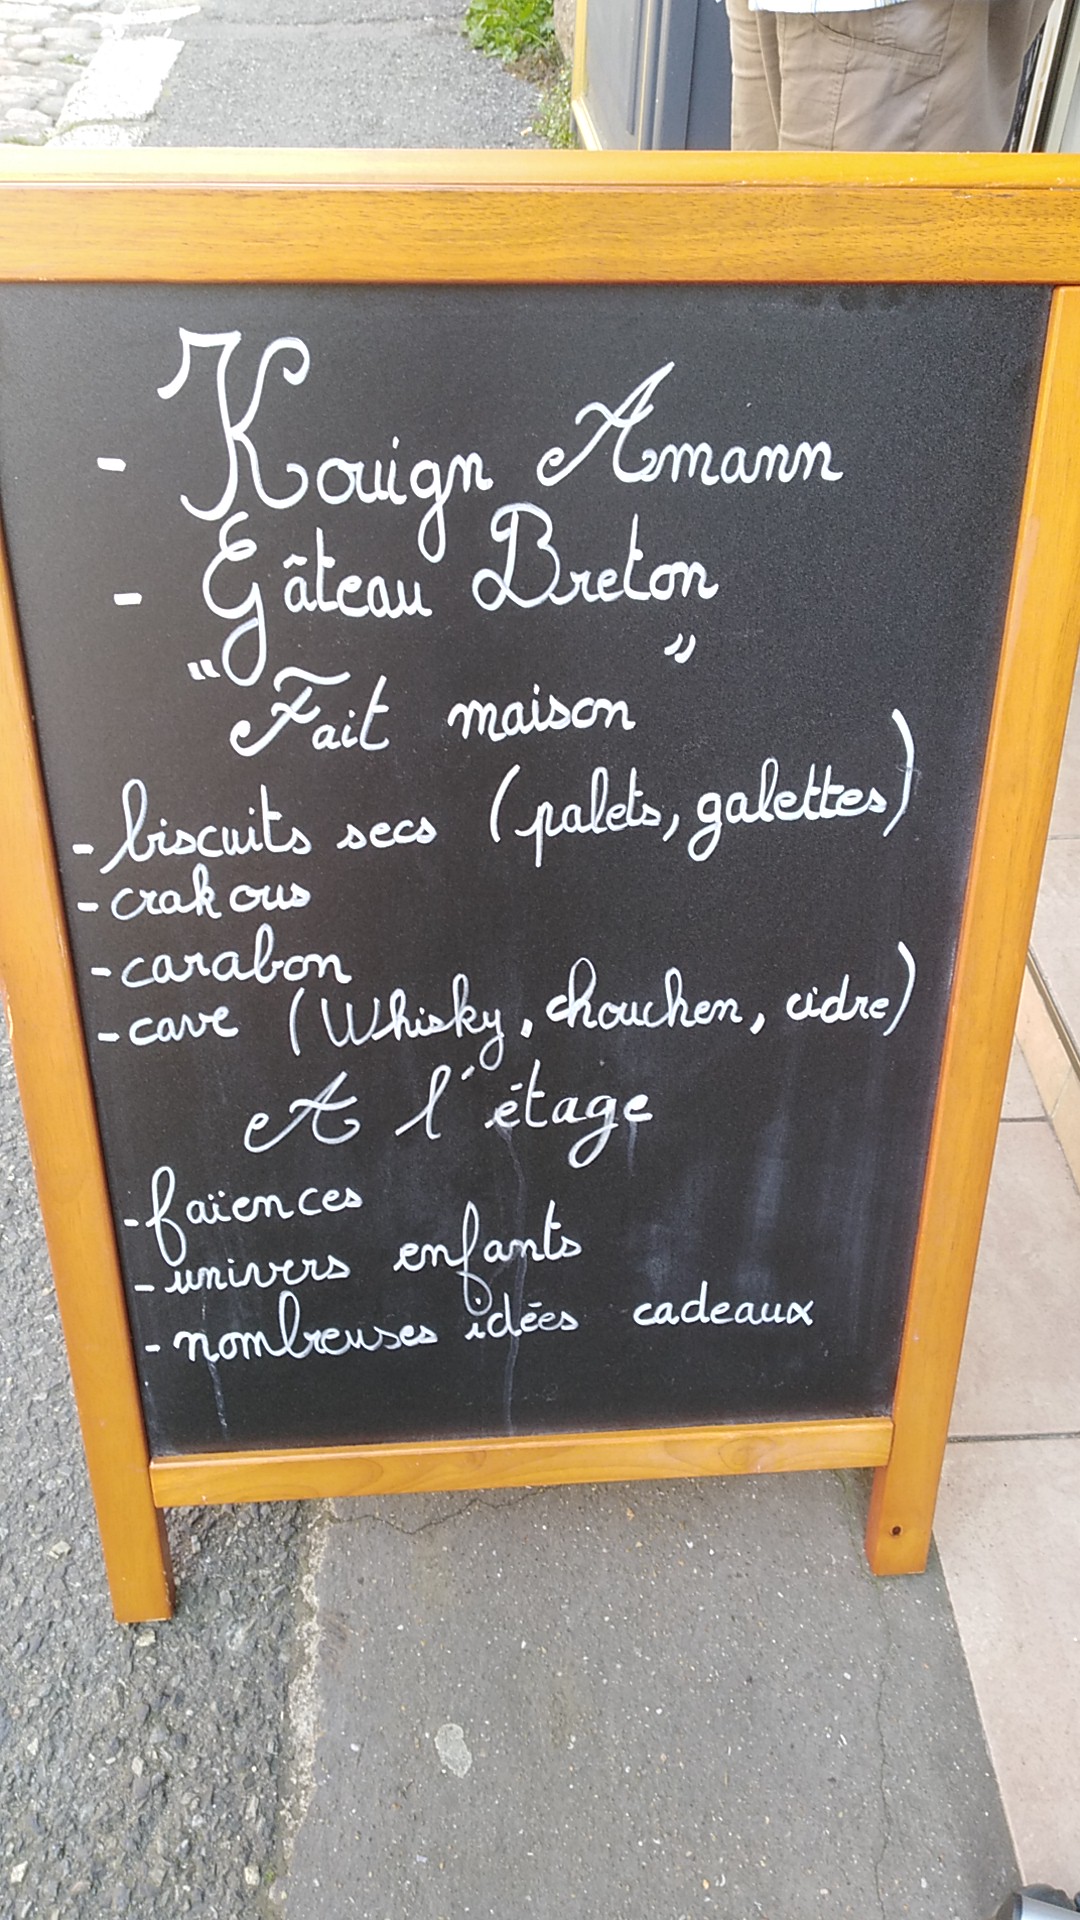 - Kouign Amann
- Gâteau Breton
" Fait maison "
- biscuits secs (palets, galettes)
- crakous
- carabon
- cave (Whisky, chouchen, cidre)
A l'étage
- faïences
- univers enfants
- nombreuses idées cadeaux